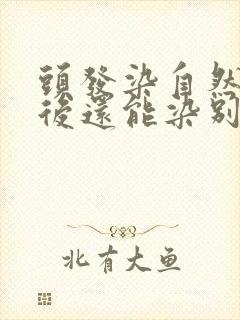 頭發染自然
後還能染别
北有大鱼